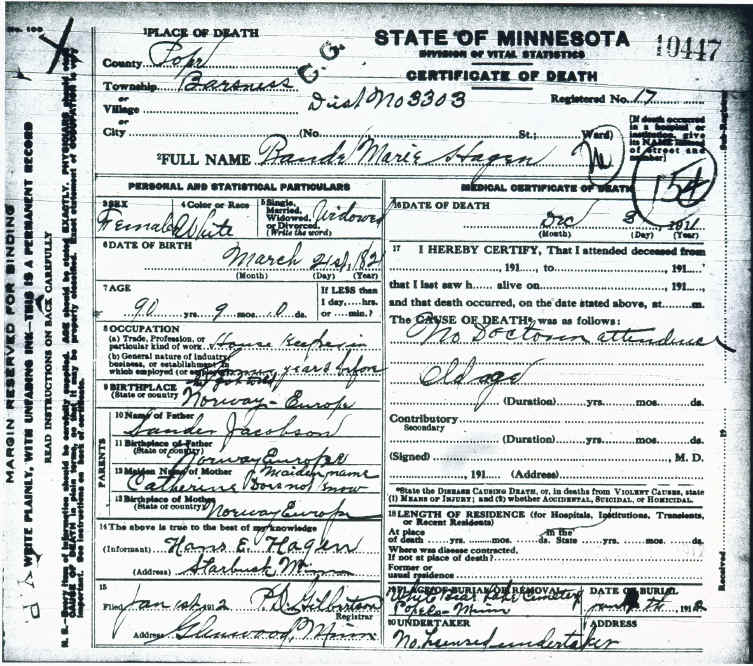 No. 100
1PLACE OF DEATH
STATE OF MINNESOTA
DIVISION OF VITAL STATISTICS
CERTIFICATE OF DEATH
10447
County Pope
C.G.
Township Barsness
or
Village
Dist No 3303
Registered No. 17
or
City (No. St.; Ward)
[If death occurred in a hospital or institution, give its NAME instead of street and number]
2FULL NAME Rande Marie Hagen
154
PERSONAL AND STATISTICAL PARTICULARS
3 SEX Female
4 Color or Race White
5 Single, Married, Widowed, or Divorced. (Write the word) Widowed
6 DATE OF BIRTH
March 21st, 182
(Month) (Day) (Year)
7 AGE
90 yrs. 9 mos. 0 ds.
If LESS than 1 day,....hrs. or....min.?
8 OCCUPATION
(a) Trade, Profession, or particular kind of work House Keeper in
(b) General nature of industry, business, or establishment in which employed (or employer) years before
9 BIRTHPLACE
(State or country) Norway - Europe
PARENTS
10 Name of Father
Sander Jacobson
11 Birthplace of Father
(State or country) Norway Europe
12 Maiden Name of Mother Maiden name
Catherine Does not know
13 Birthplace of Mother
(State or country) Norway Europe
14 The above is true to the best of my knowledge
(Informant) Hans E. Hagen
(Address) Starbuck Minn
15
Filed Jan 1st 1912 P. Gilbertson
Registrar
Address Glenwood, Minn
MEDICAL CERTIFICATE OF DEATH
16 DATE OF DEATH
Dec
(Month) (Day) (Year)
17 I HEREBY CERTIFY, That I attended deceased from
, 191 , to , 191
that I last saw h alive on , 191 ,
and that death occurred, on the date stated above, at m.
The CAUSE OF DEATH* was as follows:
No Doctor in attendance
Old age
(Duration) yrs. mos. ds.
Contributory
Secondary
(Duration) yrs. mos. ds.
(Signed) , M. D.
, 191 (Address)
*State the DISEASE CAUSING DEATH, or, in deaths from VIOLENT CAUSES, state (1) MEANS OF INJURY; and (2) whether ACCIDENTAL, SUICIDAL, or HOMICIDAL.
18 LENGTH OF RESIDENCE (for Hospitals, Institutions, Transients, or Recent Residents)
At place of death yrs. mos. ds. In the State yrs. mos. ds.
Where was disease contracted, If not at place of death?
Former or usual residence
19 PLACE OF BURIAL OR REMOVAL
White Bear Lake Cemetery
Minn
DATE OF BURIAL
th, 1912
20 UNDERTAKER
No licensed undertaker
ADDRESS
MARGIN RESERVED FOR BINDING
WRITE PLAINLY, WITH UNFADING INK—THIS IS A PERMANENT RECORD
READ INSTRUCTIONS ON BACK CAREFULLY
N. B.—Every item of information should be carefully supplied. AGE should be stated EXACTLY. PHYSICIANS should state CAUSE OF DEATH in plain terms, so that it may be properly classified. Exact statement of OCCUPATION is very important. See instructions on back of certificate.
Received